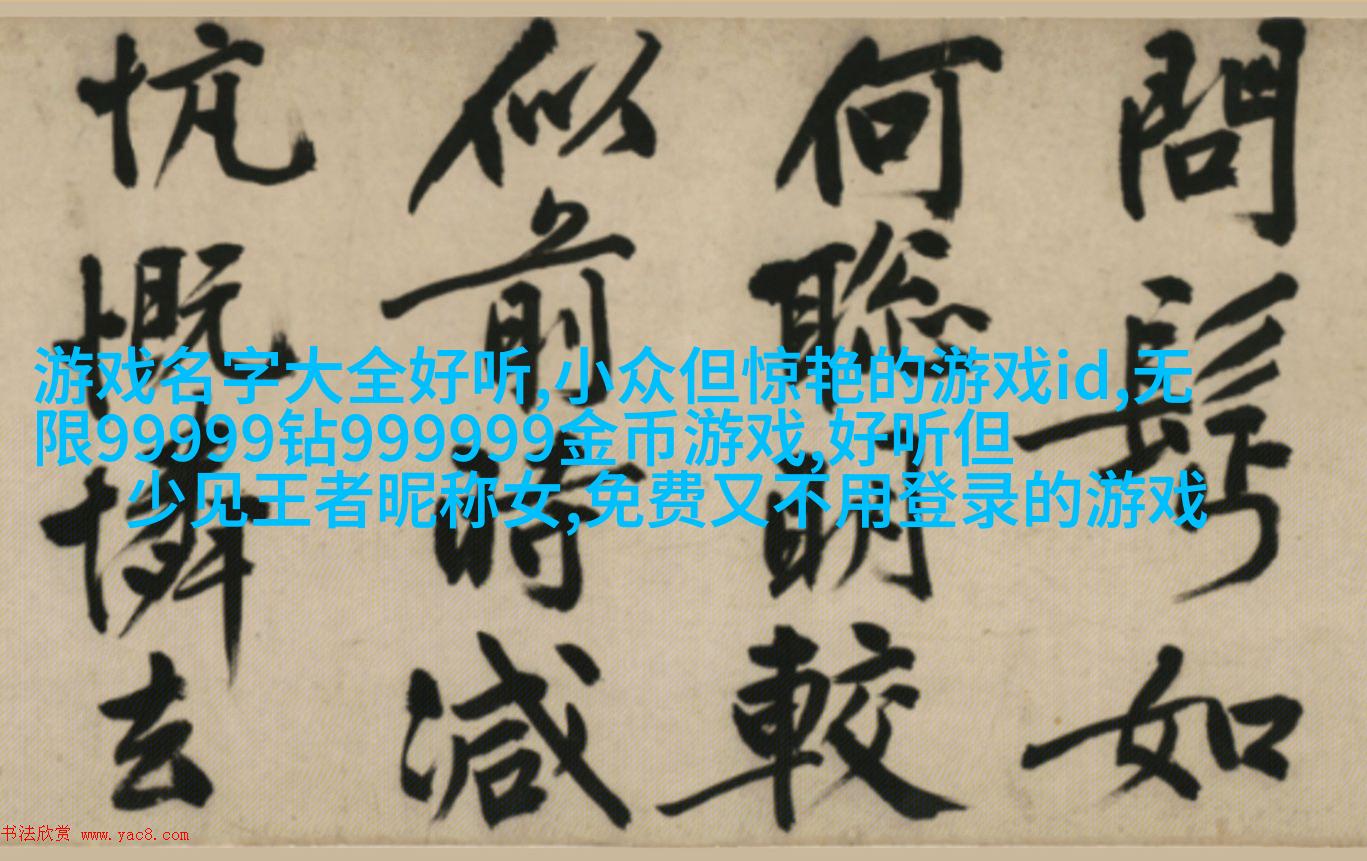 問如
何聰明較
似前時減
忼慨憐去
游戏名字大全好听,小众但惊艳的游戏id,无
限99999钻999999金币游戏,好听但
少见王者昵称女,免费又不用登录的游戏
书法欣赏 www.yac8.com